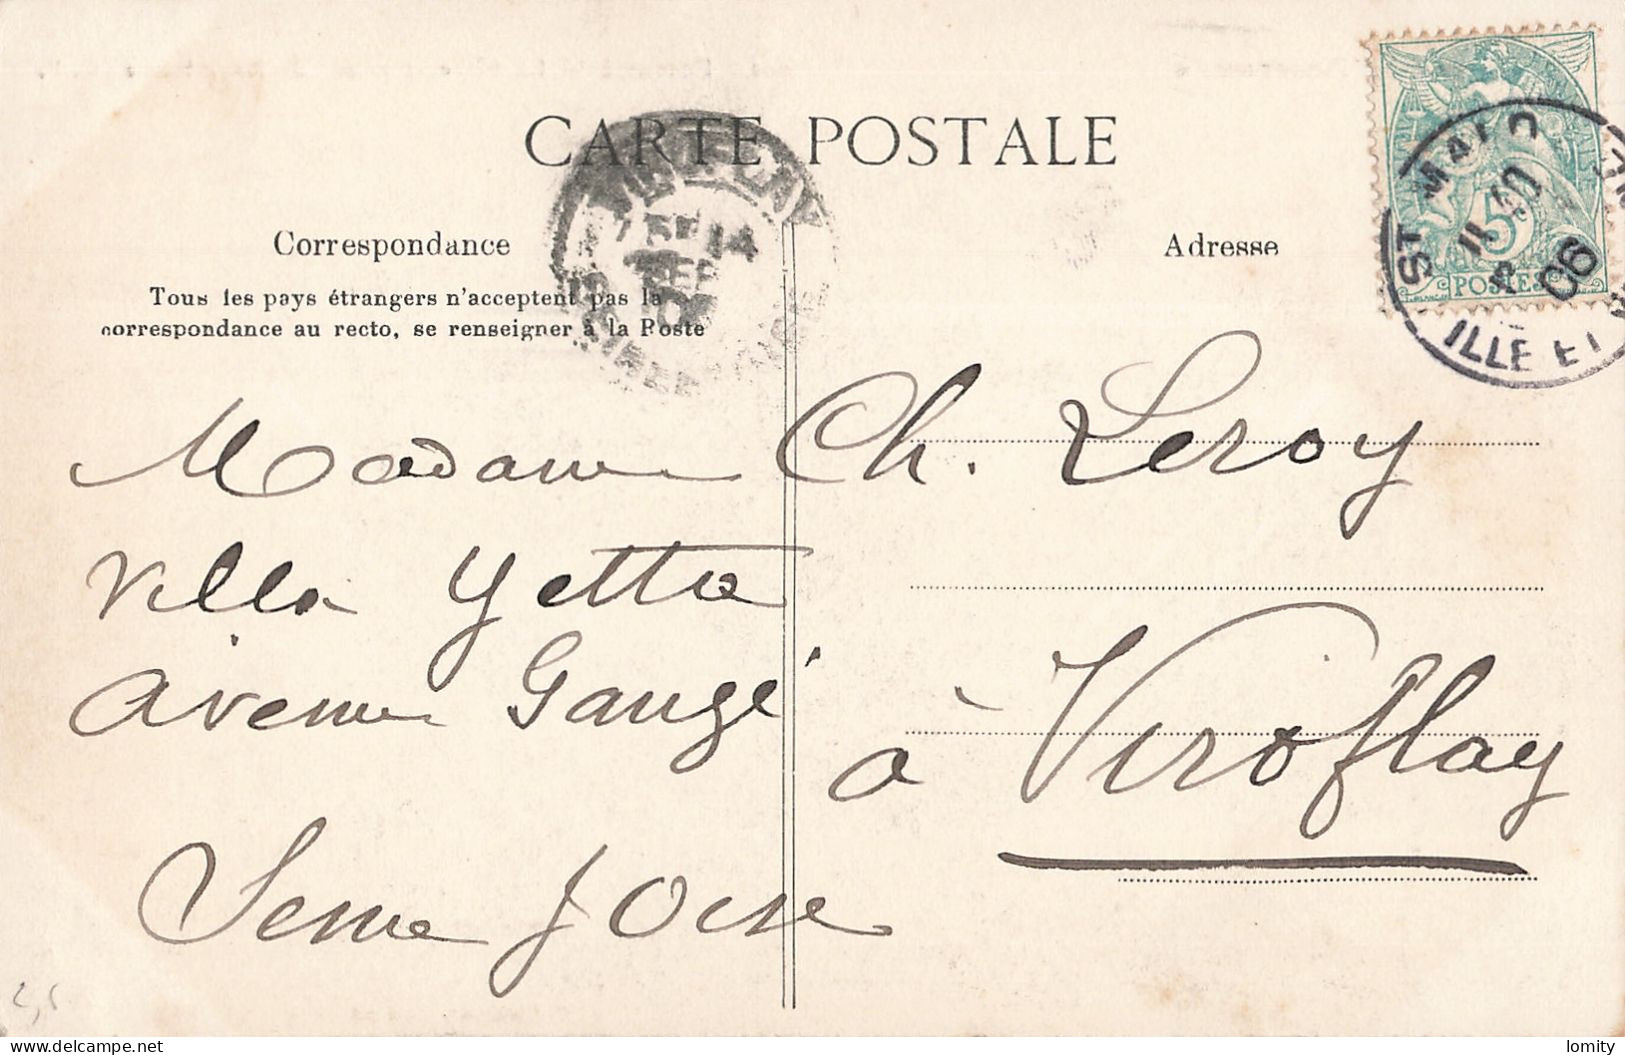 CARTE POSTALE
Correspondance
Adresse
Tous les pays étrangers n'acceptent pas la
correspondance au recto, se renseigner à la Poste
ST MALO
06
ILLE ET
5
POSTES
VIROFLAY
14
Madame Ch. Leroy
Villa Yetta
Avenue Gaugé
à Viroflay
Seine & Oise
lomity
Delcampe.net